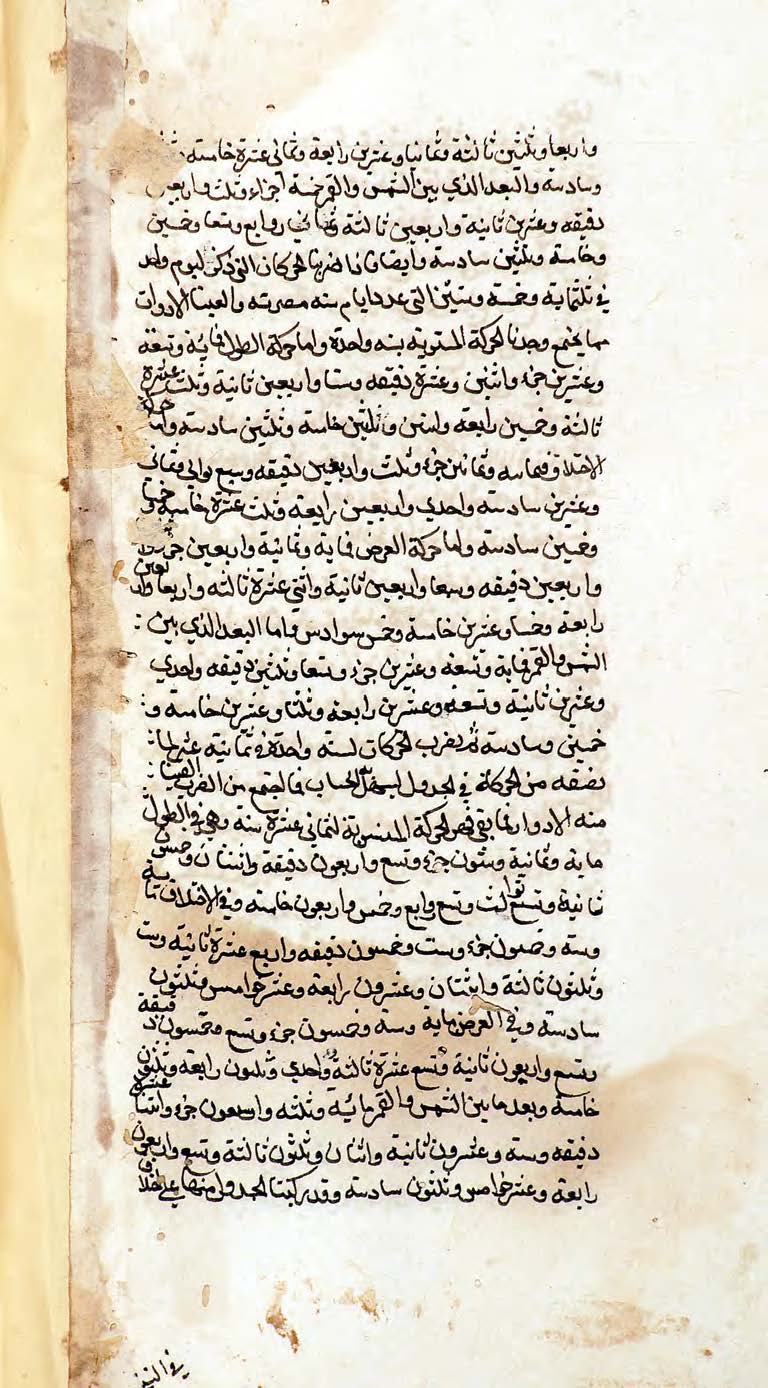 واربعا وثلثين ثالثة وثمانيا وعشرين رابعة وثماني عشرة خامسة
وسادسة والبعد الذي بين الشمس والقمر خمسة اجزاء وثلث واربعين
دقيقه وعشرين ثانية واربعين ثالثة وثماني روابع وتسعا وخمسين
وخامسة وثلثين سادسة وايضا فاذا ضربنا الحركات التي ذكرن ليوم واحد
في ثلثماية وخمسة وستين التي عدد ايام سنه مصريه والغينا الادوات
مما يجتمع وجدنا الحركة المستوية بسنه واحدة واما حركة الطول فماية وتسعه
وعشرين جزء واثنين وعشرة دقيقه وستا واربعين ثانية وثلث عشرة
ثالثة وخمسين رابعة واثنين وثلثين خامسة وثلثين سادسة واما حركة
الاختلاف فثمانيه وثمانين جزء وثلث واربعين دقيقه وسبع ثواني وثماني
وعشرين سادسه واحدي واربعين رابعة وثلث عشرة خامسة وخمسا
وخمسين سادسة واما حركة العرض فماية وثمانية واربعين جزء
واربعين دقيقه وسبعا واربعين ثانية واثنتي عشرة ثالثه واربعا واربعين
رابعة وخمسا وعشرين خامسة وخمس سوادس واما البعد الذي بين :
الشمس والقمر فماية وتسعة وعشرين جزء وسبعا وثلثين دقيقه واحدي
وعشرين ثانية وتسعه وعشرين رابعة وثلثا وعشرين خامسة و :
خمسين وسادسة ثم نضرب الحركات لسنه واحدة في ثمانية عشر لما :
نضفه من الحركة في الجدول ليسهل الحساب فما اجتمع من الضرب القينا :
منه الادوار فما بقي فهو الحركة المستوية لثماني عشرة سنة وهي في الطول
ماية وثمانية وستون جزء وتسع واربعون دقيقة واثنتان وخمسون
ثانية وتسع ثوالث وتسع روابع وخمس واربعون خامسه وفي الاختلاف ماية
وستة وخمسون جزء وست وخمسون دقيقه واربع عشرة ثانية وست
وثلثون ثالثة واثنتان وعشرون رابعة وعشر خوامس وثلثون
سادسة وفي العرض ماية وستة وخمسون جزء وتسع وخمسون دقيقة
وتسع واربعون ثانية وتسع عشرة ثالثة واحدي وثلثون رابعة وثلثون
خامسة وبعد ما بين الشمس والقمر ماية وثلثه وسبعون جزء واثنتا عشرة
دقيقه وستة وعشرون ثانية واثنان وثلثون ثالثة وتسع واربعون
رابعة وعشر خوامس وثلثون سادسة وقد ركبنا الجدول منها علي خلاف
في النيـ